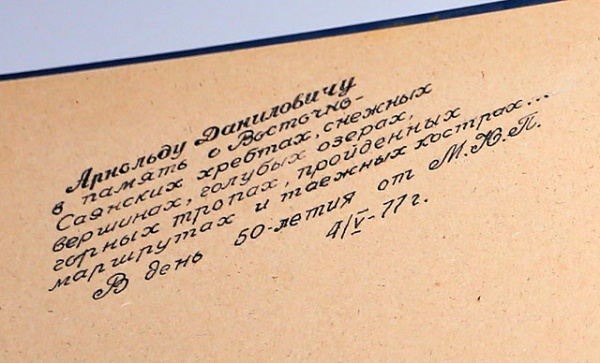 Арнольду Даниловичу
в память о Восточно-
Саянских хребтах, снежных
вершинах, голубых озерах,
горных тропах, пройденных
маршрутах и таежных кострах...
В день 50-летия от М.Ю.П.
4/V-77г.